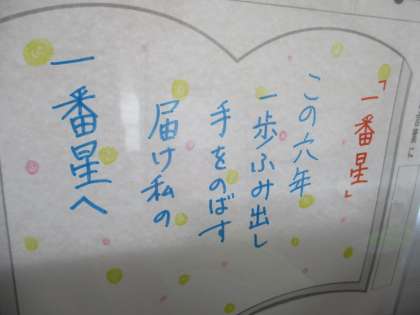 「一番星」
この六年
一歩ふみ出し
手をのばす
届け私の
一番星へ